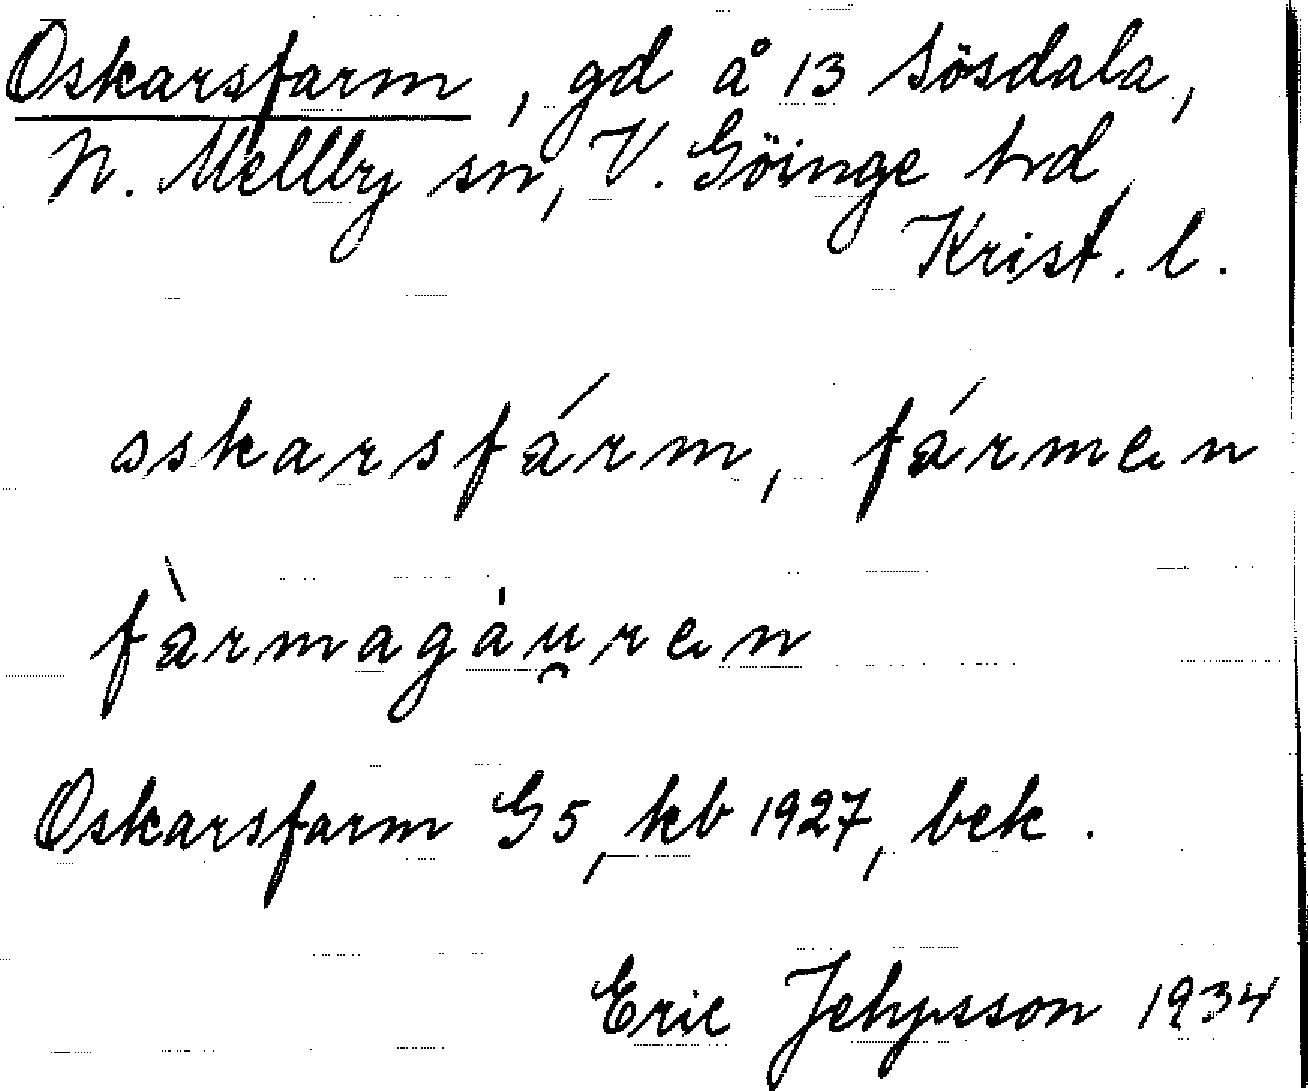 Oskarsfarm, gd å 13 Sösdala,
N. Mellby sn, V. Göinge hd,
Krist. l.
oskarsfárm, fármen
fàrmagåu̯ren
Oskarsfarm G5, kb 1927, bek.
Eric 1934